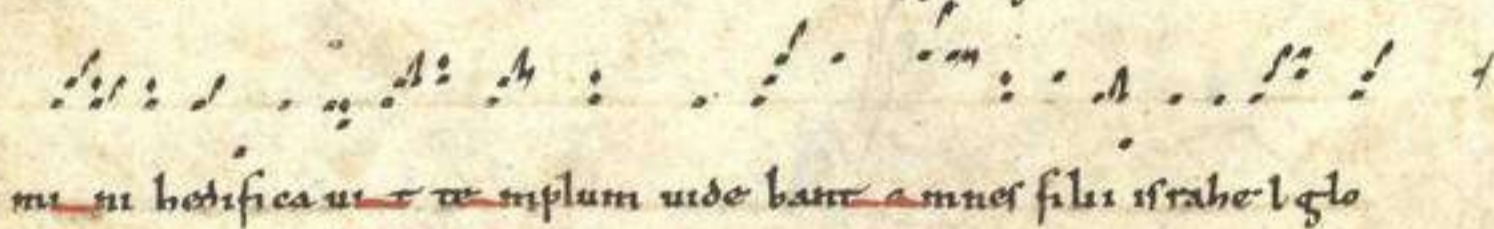 mi ni hedifica ui t te mplum uide bant o mnes filii israhe l glo